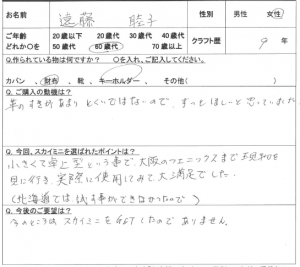 お名前 遠藤 睦子 性別 男性 女性
ご年齢 20歳以下 20歳代 30歳代 40歳代
どれか○を 50歳代 60歳代 70歳以上 クラフト歴 9年
Q.作られている物は何ですか? ○を入れ、ご記入してください。
カバン 、 財布 、 靴 、 キーホルダー 、 その他( )
Q.ご購入の動機は?
革のすきがあまりとくいではないので、ずっとほしいと思っていました
Q.今回、スカイミニを選ばれたポイントは?
小さくて卓上型という事で、大阪のフェニックスまで現物を
見に行き、実際に使用してみて大満足でした。
(北海道では試す事ができなかったので)
Q.今後のご要望は?
今のところは スカイミニをGETしたので ありません。